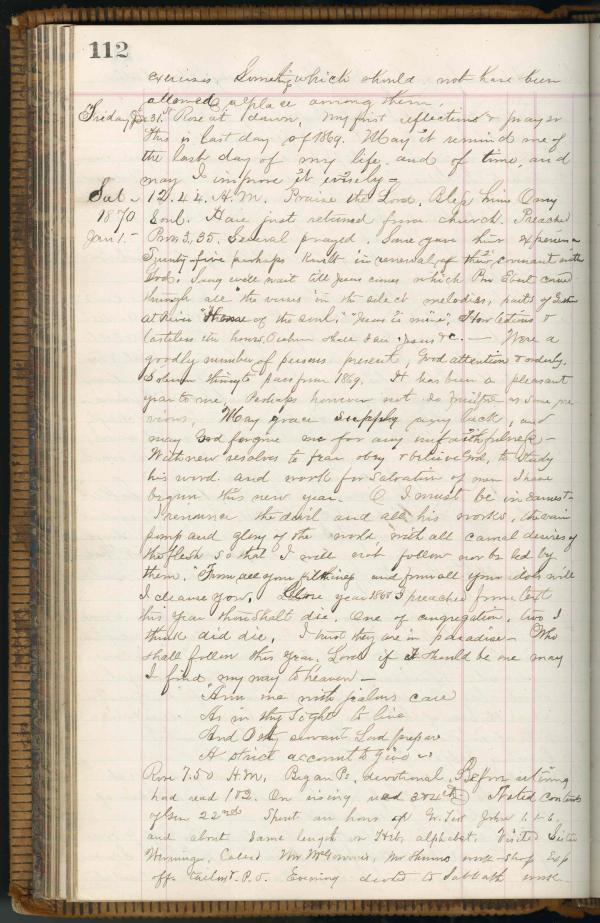 112
exercises. Something which should not have been
allowed a place among them.
Friday Dec 31st Rose at dawn. My first reflections & prayer
this is last day of 1869. May it remind me of
the last day of my life, and of time, and
may I improve it wisely –
Sat – 12.44. A.M. Praise the Lord, Bless him O my
1870 Soul. Have just returned from church. Preached
Jan 1. – Prov 3, 35. Several prayed. Some gave their experience
Twenty-five perhaps knelt in renewal of their covenant with
God. Sang we'll wait till Jesus comes which
through all the verses in the select melodies, parts of
at River "Home of the soul," "Jesus is mine," How tedious &
tasteless the hours, O when shall I see Jesus &c. – Were a
goodly number of persons present, Good attention & orderly.
Solemn thing to pass from 1869. It has been a pleasant
year to me, Perhaps however not so fruitful as some pre
vious, May grace supply any lack, and
may God forgive me for any unfaithfulness –
With new resolves to fear obey & believe God, to study
his word and work for salvation of men I have
begun this new year. O I must be in earnest –
I renounce the devil and all his works, the vain
pomp and glory of the world with all carnal desires of
the flesh so that I will not follow nor be led by
them. "From all your filthiness and from all your idols will
I cleanse you. Close year 1868 I preached from text
this year thou shalt die. One of congregation, two I
think did die, I trust they are in paradise – Who
shall follow this year. Lord if it should be me may
I find my way to heaven –
Arm me with jealous care
As in thy sight to live
And Oh, servant Lord prepare
A strict account to give –
Rose 7.50 A.M. Began Ps. devotional. Before retiring
had read 1 & 2. On rising read 3 & 4th Noted contents
of Gen 22nd Spent an hour of Gr. Test John 1. 1-6.
and about same length in Heb. alphabet. Visited Sister
Called work-shop
off. P.O. Evening devoted to Sabbath work